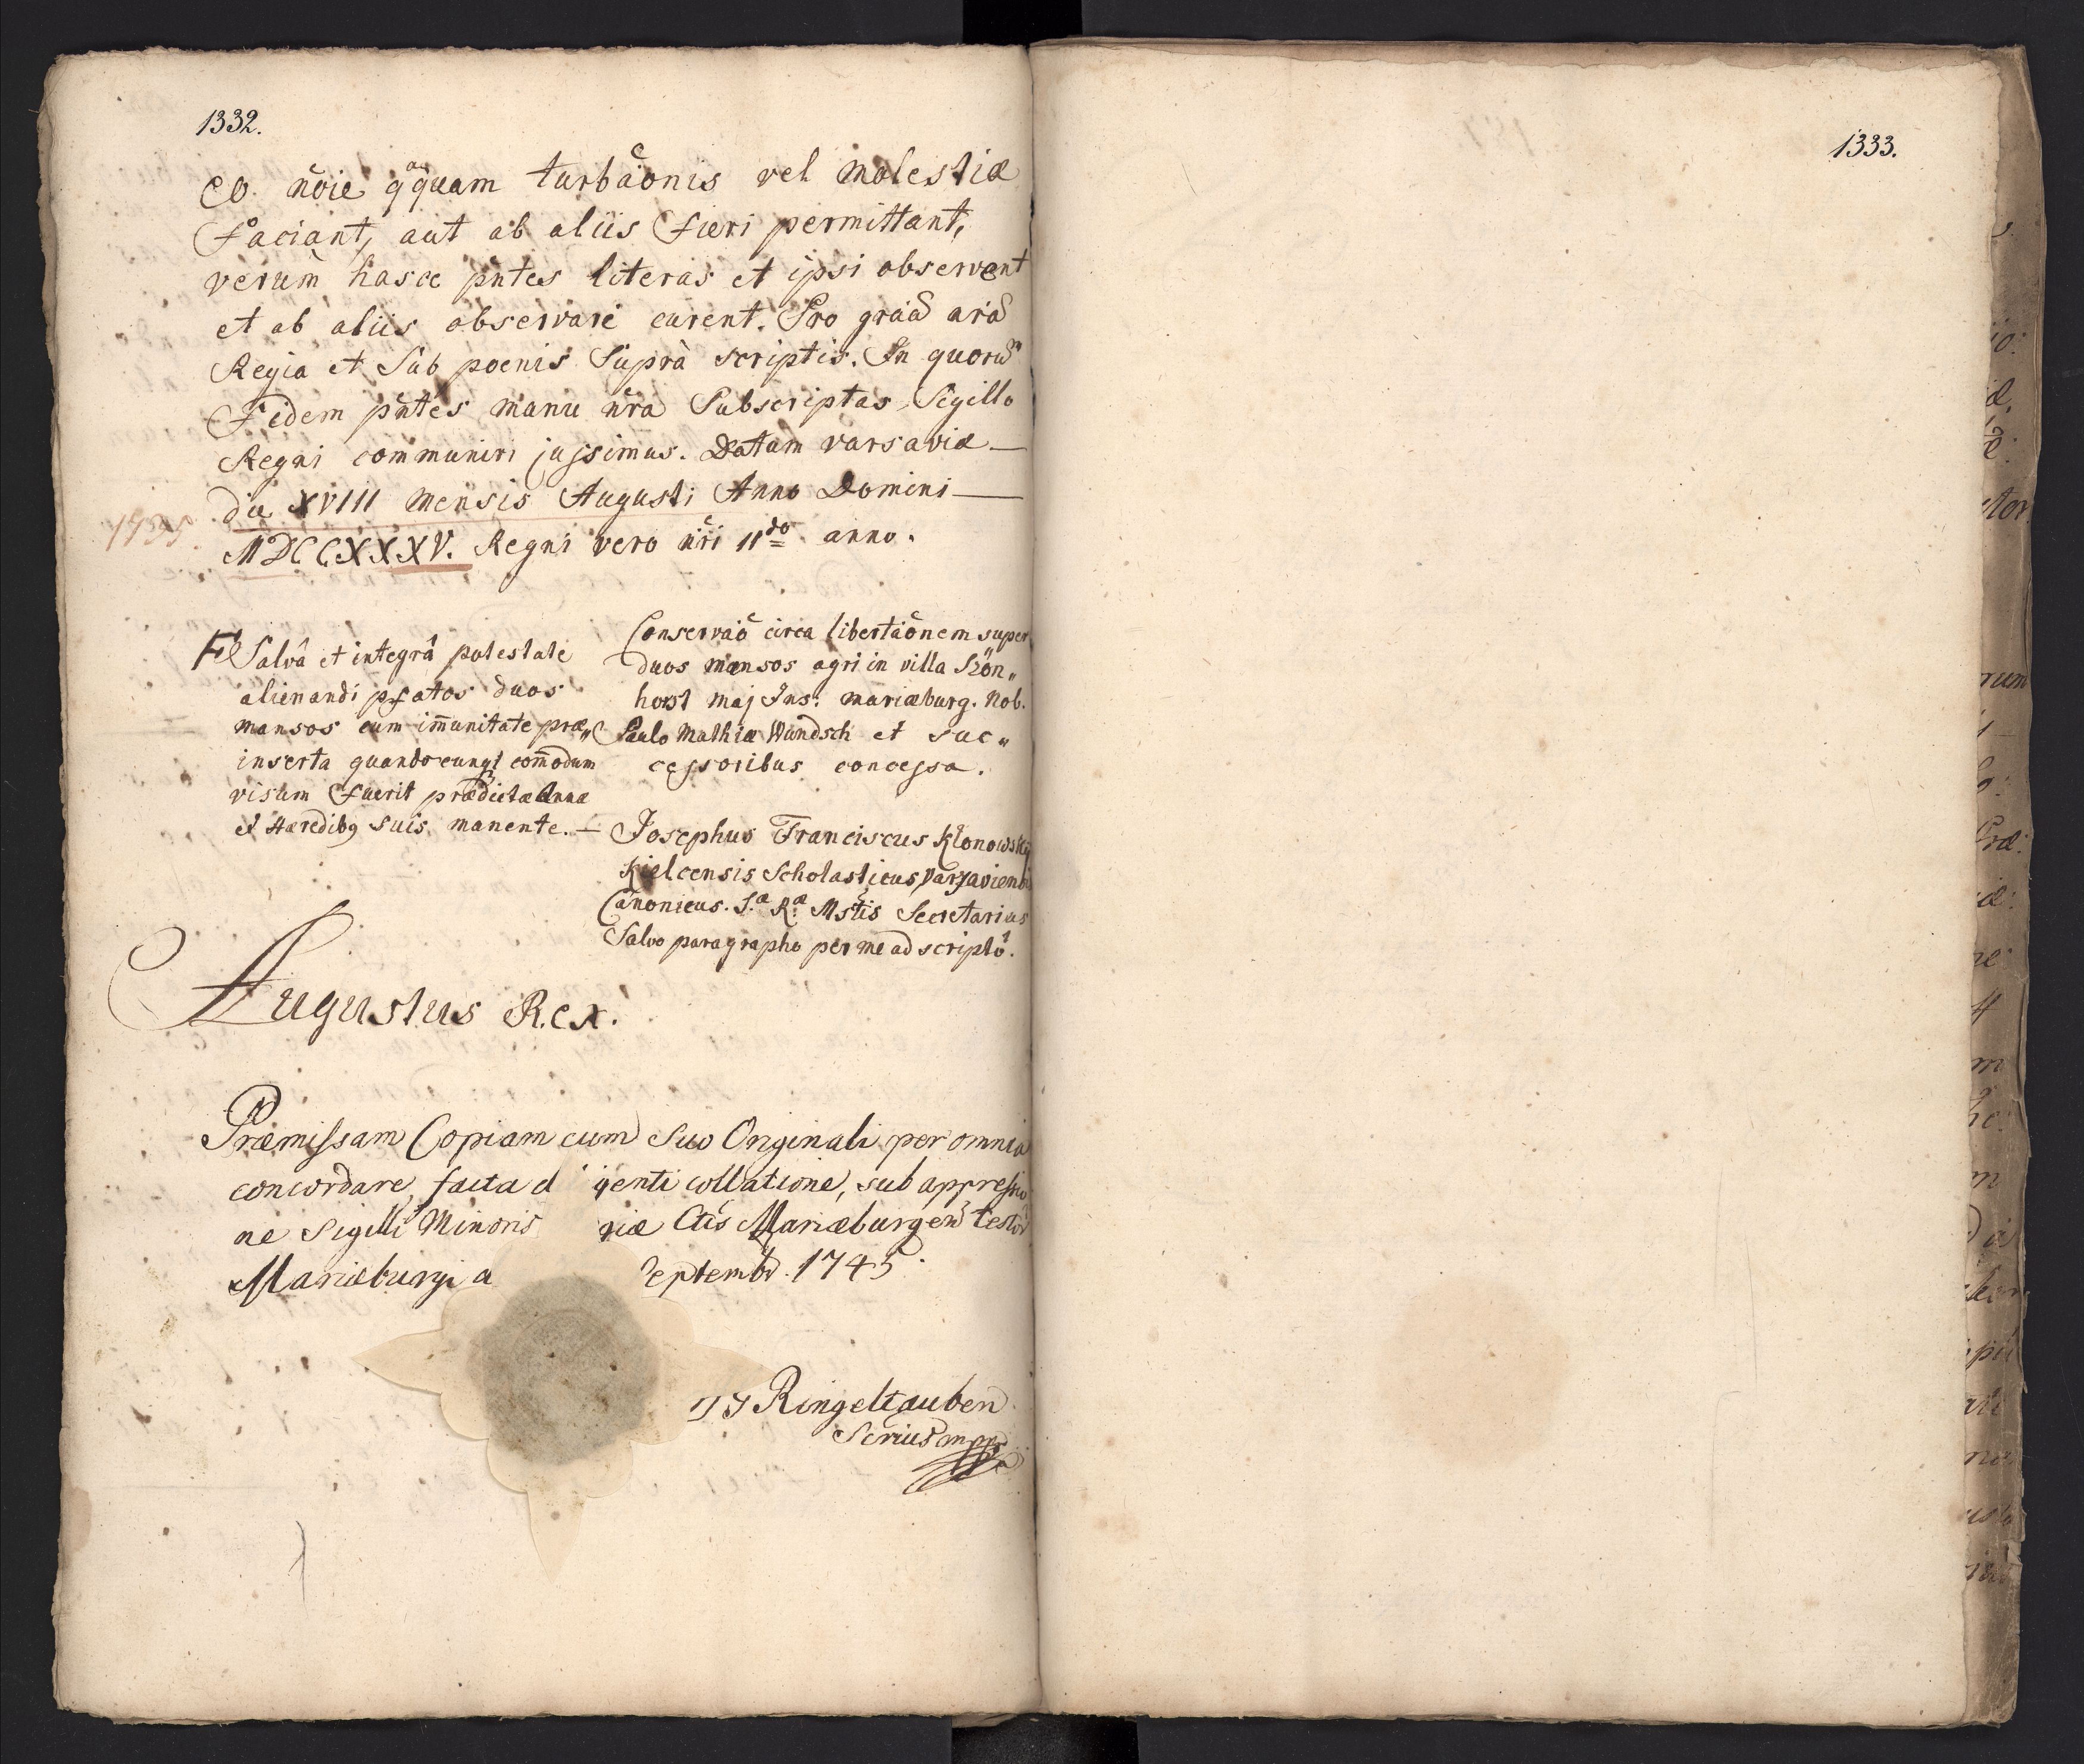 1332.
eo nõie qquam turbãonis vel molestiæ
Faciant, aut ab aliis Fieri permittant,
verum hasce pñtes literas et ipsi observent
et ab aliis observari curent. Pro graã ñrã
Regia et Sub poenis Suprà scriptis. In quorũ
Fidem pñtes manu ñra Subscriptas Sigillo
Regni communiri jussimus. Datum varsaviæ —
die XVIII mensis Augusti Anno Domini —
1735.
MDCCXXXV. Regni vero ñri 11do anno.
Salvâ et integrâ potestate
alienandi pfatos duos
mansos cum im̃unitate præ„
inserta quandocunq com̃odum
visum Fuerit prædictæ Annæ
et Hæredibq suis manente. —
Conservaõ circa libertaõnem super
duos mansos agri in villa Szön„
horst maj Ins: mariæburg. Nob.
Paulo Mathiæ Wundsch et suc„
cessoribus concessa.
Josephus Franciscus Klonowski
Kielcensis Scholasticus, Varsaviensis
Canonicus. S.æ R.æ Mstis Secretarius
Salvo paragrapho per me ad scripto.
Augustus Rex.
Præmissam Copiam cum Suo Originali per omnia
concordare, facta d genti collatione, sub appressio
ne Sigilli Minoris riæ Ctis Mariæburgen testor
Mariæburgi a eptembr. 1745.
Ringeltauben
Scrius mpp
1333.